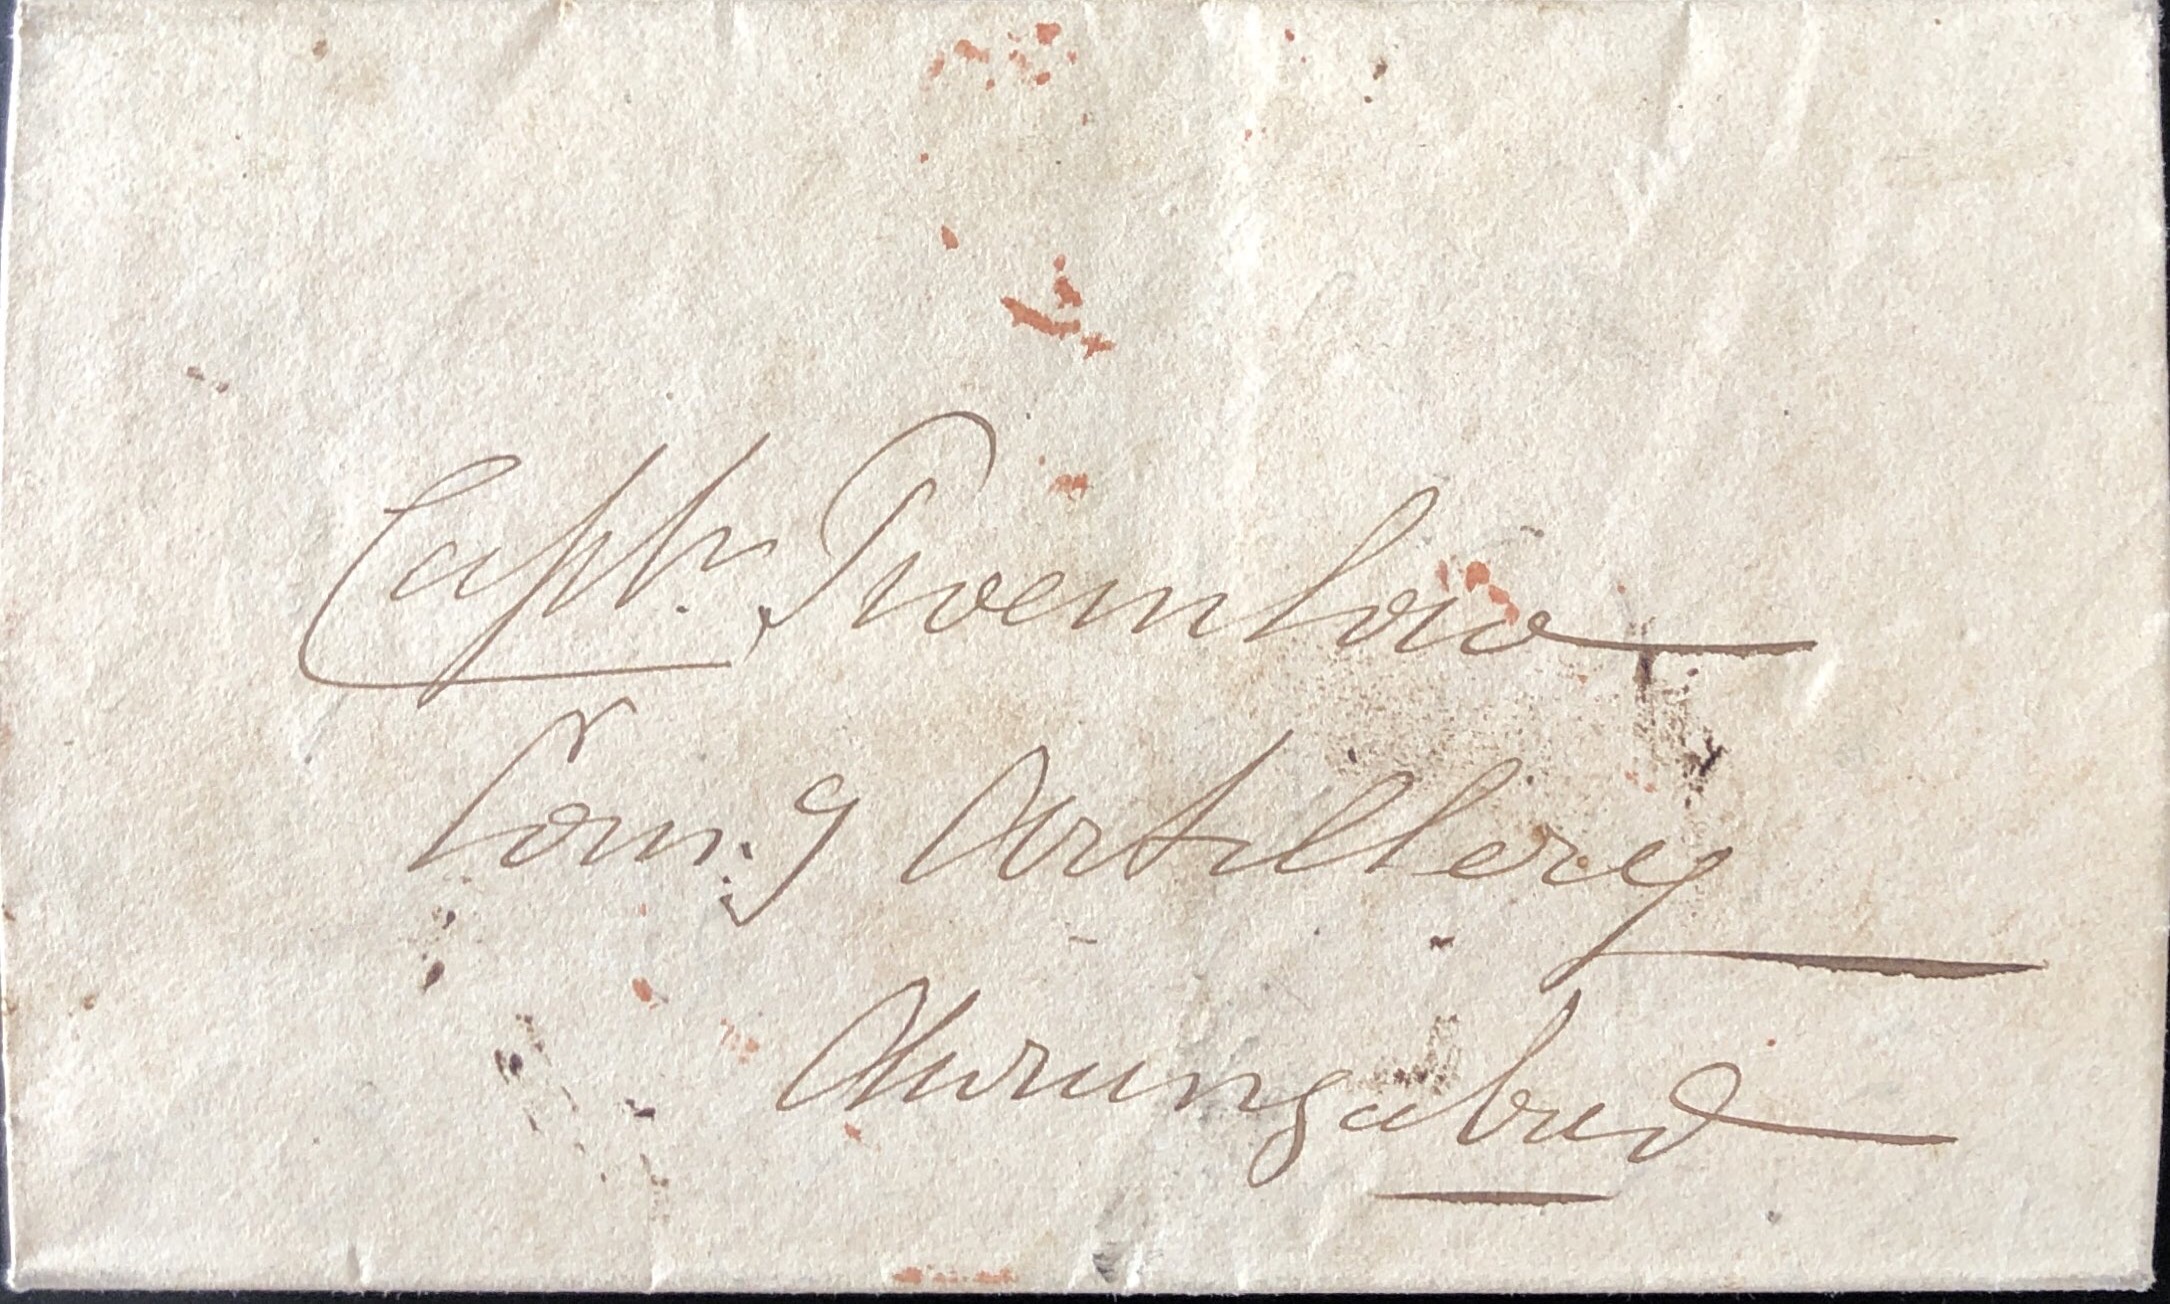 Captn. Twemlow
Comg Artillery
Aurungabad